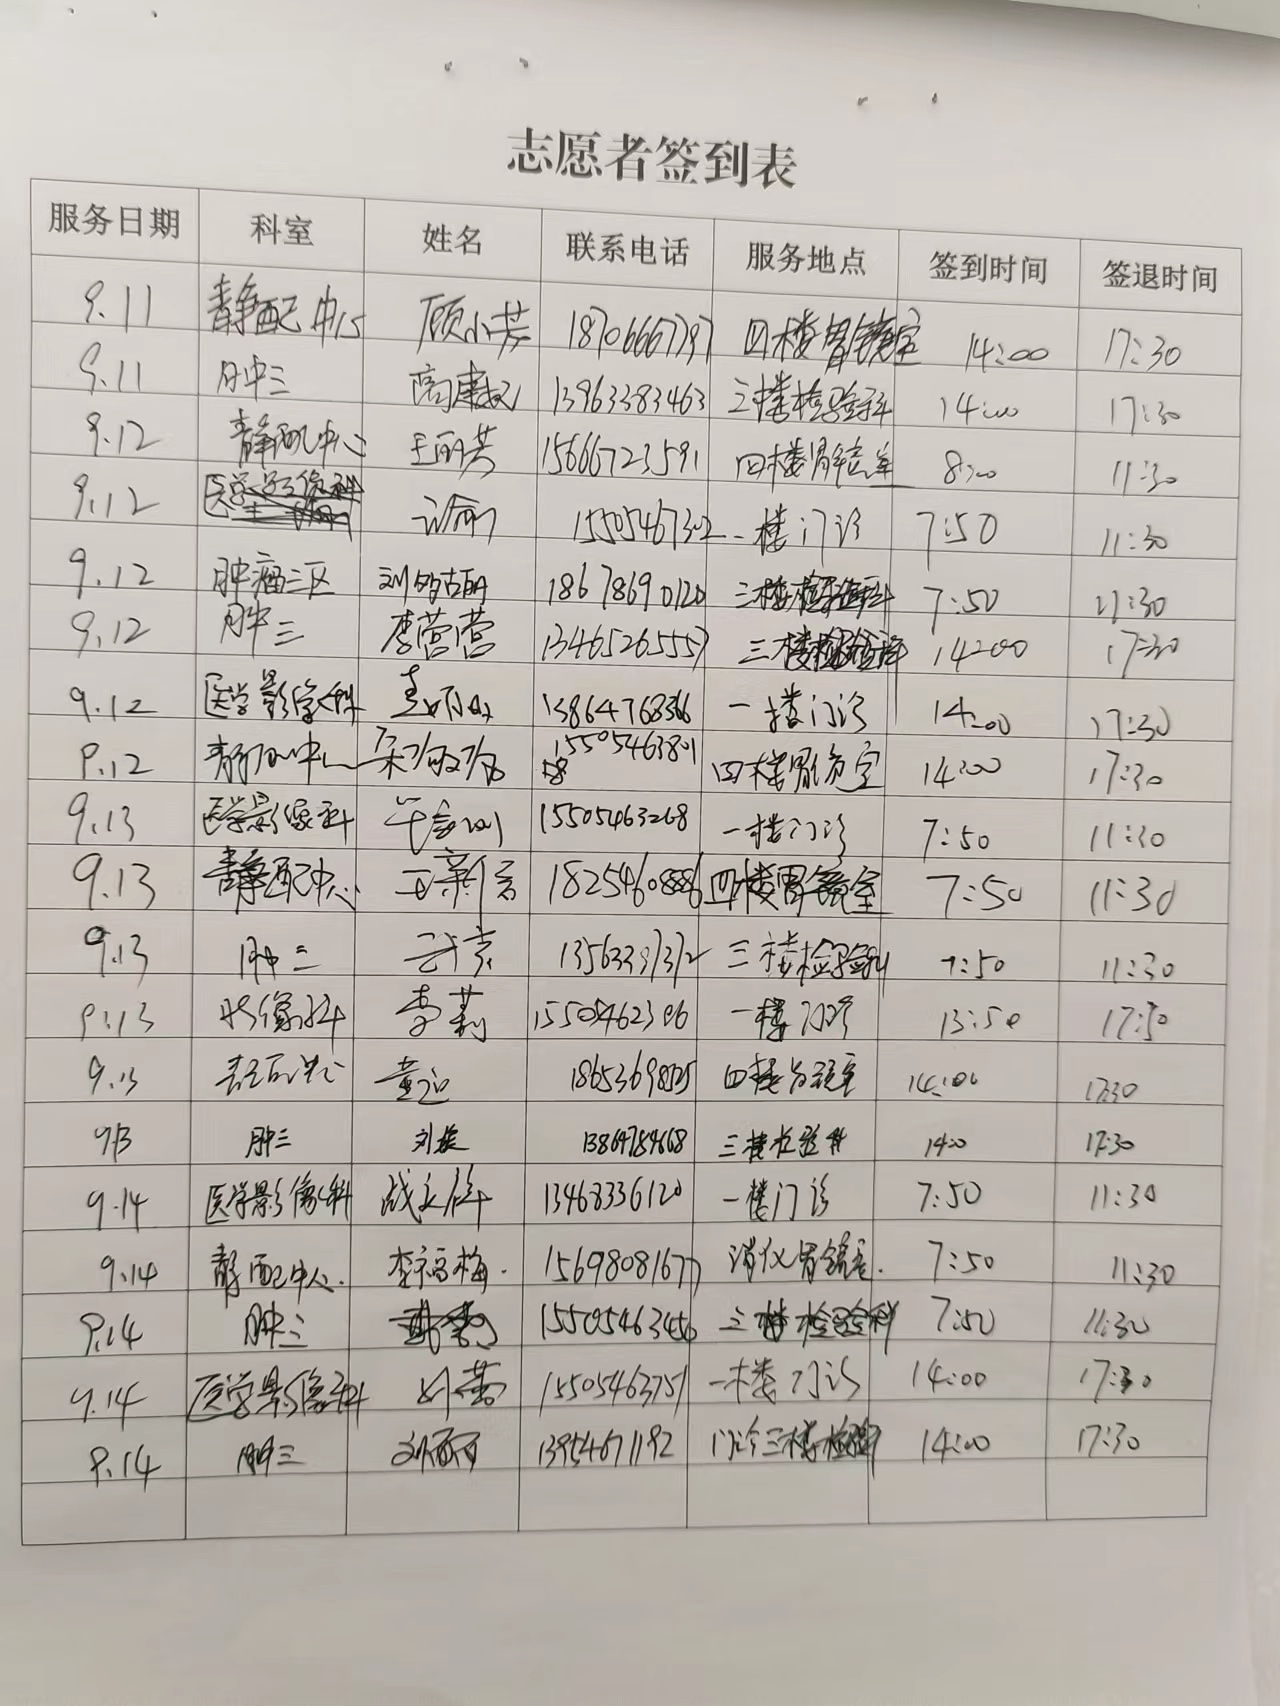 志愿者签到表
服务日期 科室 姓名 联系电话 服务地点 签到时间 签退时间
9.11 静配中心 顾小芳 18706667797 四楼胃镜室 14:00 17:30
9.11 肿三 13963383463 三楼检验科 14:00 17:30
9.12 静配中心 15666723591 四楼胃镜室 8:00 11:30
9.12 医学影像科 15505467302 一楼门诊 7:50 11:30
9.12 肿瘤三区 18678690120 三楼检验科 7:50 11:30
9.12 肿三 李营营 13465265557 三楼检验科 14:00 17:30
9.12 医学影像科 13864768366 一楼门诊 14:00 17:30
9.12 静配中心 四楼胃镜室 14:00 17:30
9.13 医学影像科 15505463268 一楼门诊 7:50 11:30
9.13 静配中心 王新 18254608886 四楼胃镜室 7:50 11:30
9.13 肿三 三楼检验科 7:50 11:30
9.13 影像科 李莉 15505462306 一楼门诊 13:50 17:30
9.13 静配中心 董 四楼胃镜室 14:00 17:30
9.13 肿三 刘 13864754668 三楼检验科 14:00 17:30
9.14 医学影像科 战 13468336120 一楼门诊 7:50 11:30
9.14 静配中心. 李福梅. 15698081677 消化胃镜室. 7:50 11:30
9.14 肿三 15505463456 三楼检验科 7:50 11:30
9.14 医学影像科 15505463751 一楼门诊 14:00 17:30
9.14 肿三 刘丽 13954671192 门诊三楼检验 14:00 17:30